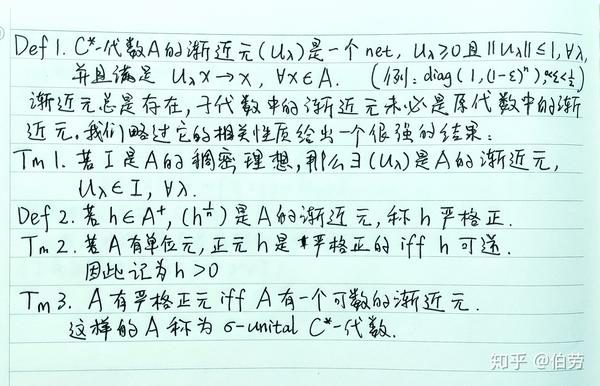 Def 1. C*-代数A的渐近元(u_λ)是一个net, u_λ≥0且‖u_λ‖≤1, ∀λ,
并且满足 u_λx→x, ∀x∈A. (例: diag(1,(1-ε)ⁿ), 0<ε<1/2)
渐近元总是存在,子代数中的渐近元未必是原代数中的渐
近元。我们略过它的相关性质给出一个很强的结果:
Tm 1. 若I是A的稠密理想,那么∃(u_λ)是A的渐近元,
u_λ∈I, ∀λ.
Def 2. 若h∈A⁺, (h^{1/n})是A的渐近元,称h严格正.
Tm 2. 若A有单位元,正元h是严格正的 iff h可逆.
因此记为h>0
Tm 3. A有严格正元 iff A有一个可数的渐近元.
这样的A称为σ-unital C*-代数.
知乎 @伯劳